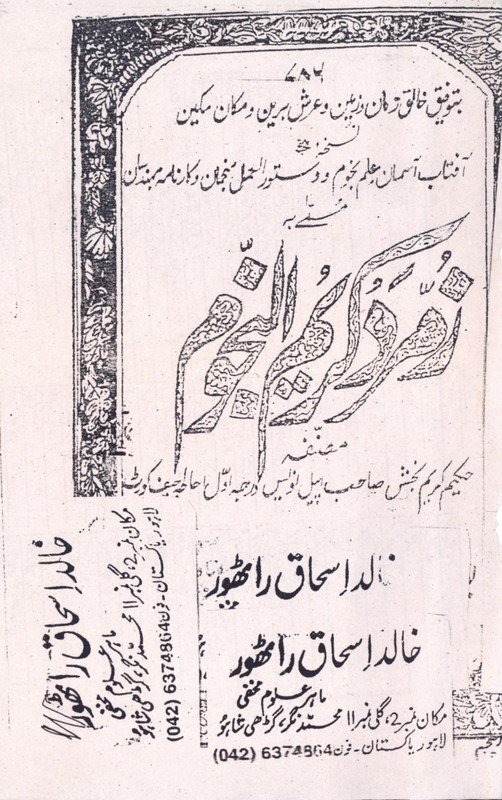 ۷۸۶
بتوفیق خالق زمان و زمین و عرش برین و مکان مکین
نسخہ
آفتاب آسمان علم نجوم و دستور العمل منجمان و کارنامہ مہندسان
مسمّٰے بہ
زمرد کریم النجوم
مصنّفہ
حکیم کریم بخش صاحب اپیل نویس درجہ اوّل احاطہ چیف کورٹ
خالد اسحاق راٹھور
ماہر علوم مخفی
مکان نمبر 2، گلی نمبر 11 محمد نگر، گڑھی شاہو
لاہور پاکستان - فون 6374864 (042)
الد اسحاق راٹھور
خالد اسحاق راٹھور
ماہر علوم مخفی
مکان نمبر 2، گلی نمبر 11 محمد نگر، گڑھی شاہو
لاہور پاکستان - فون 6374864 (042)